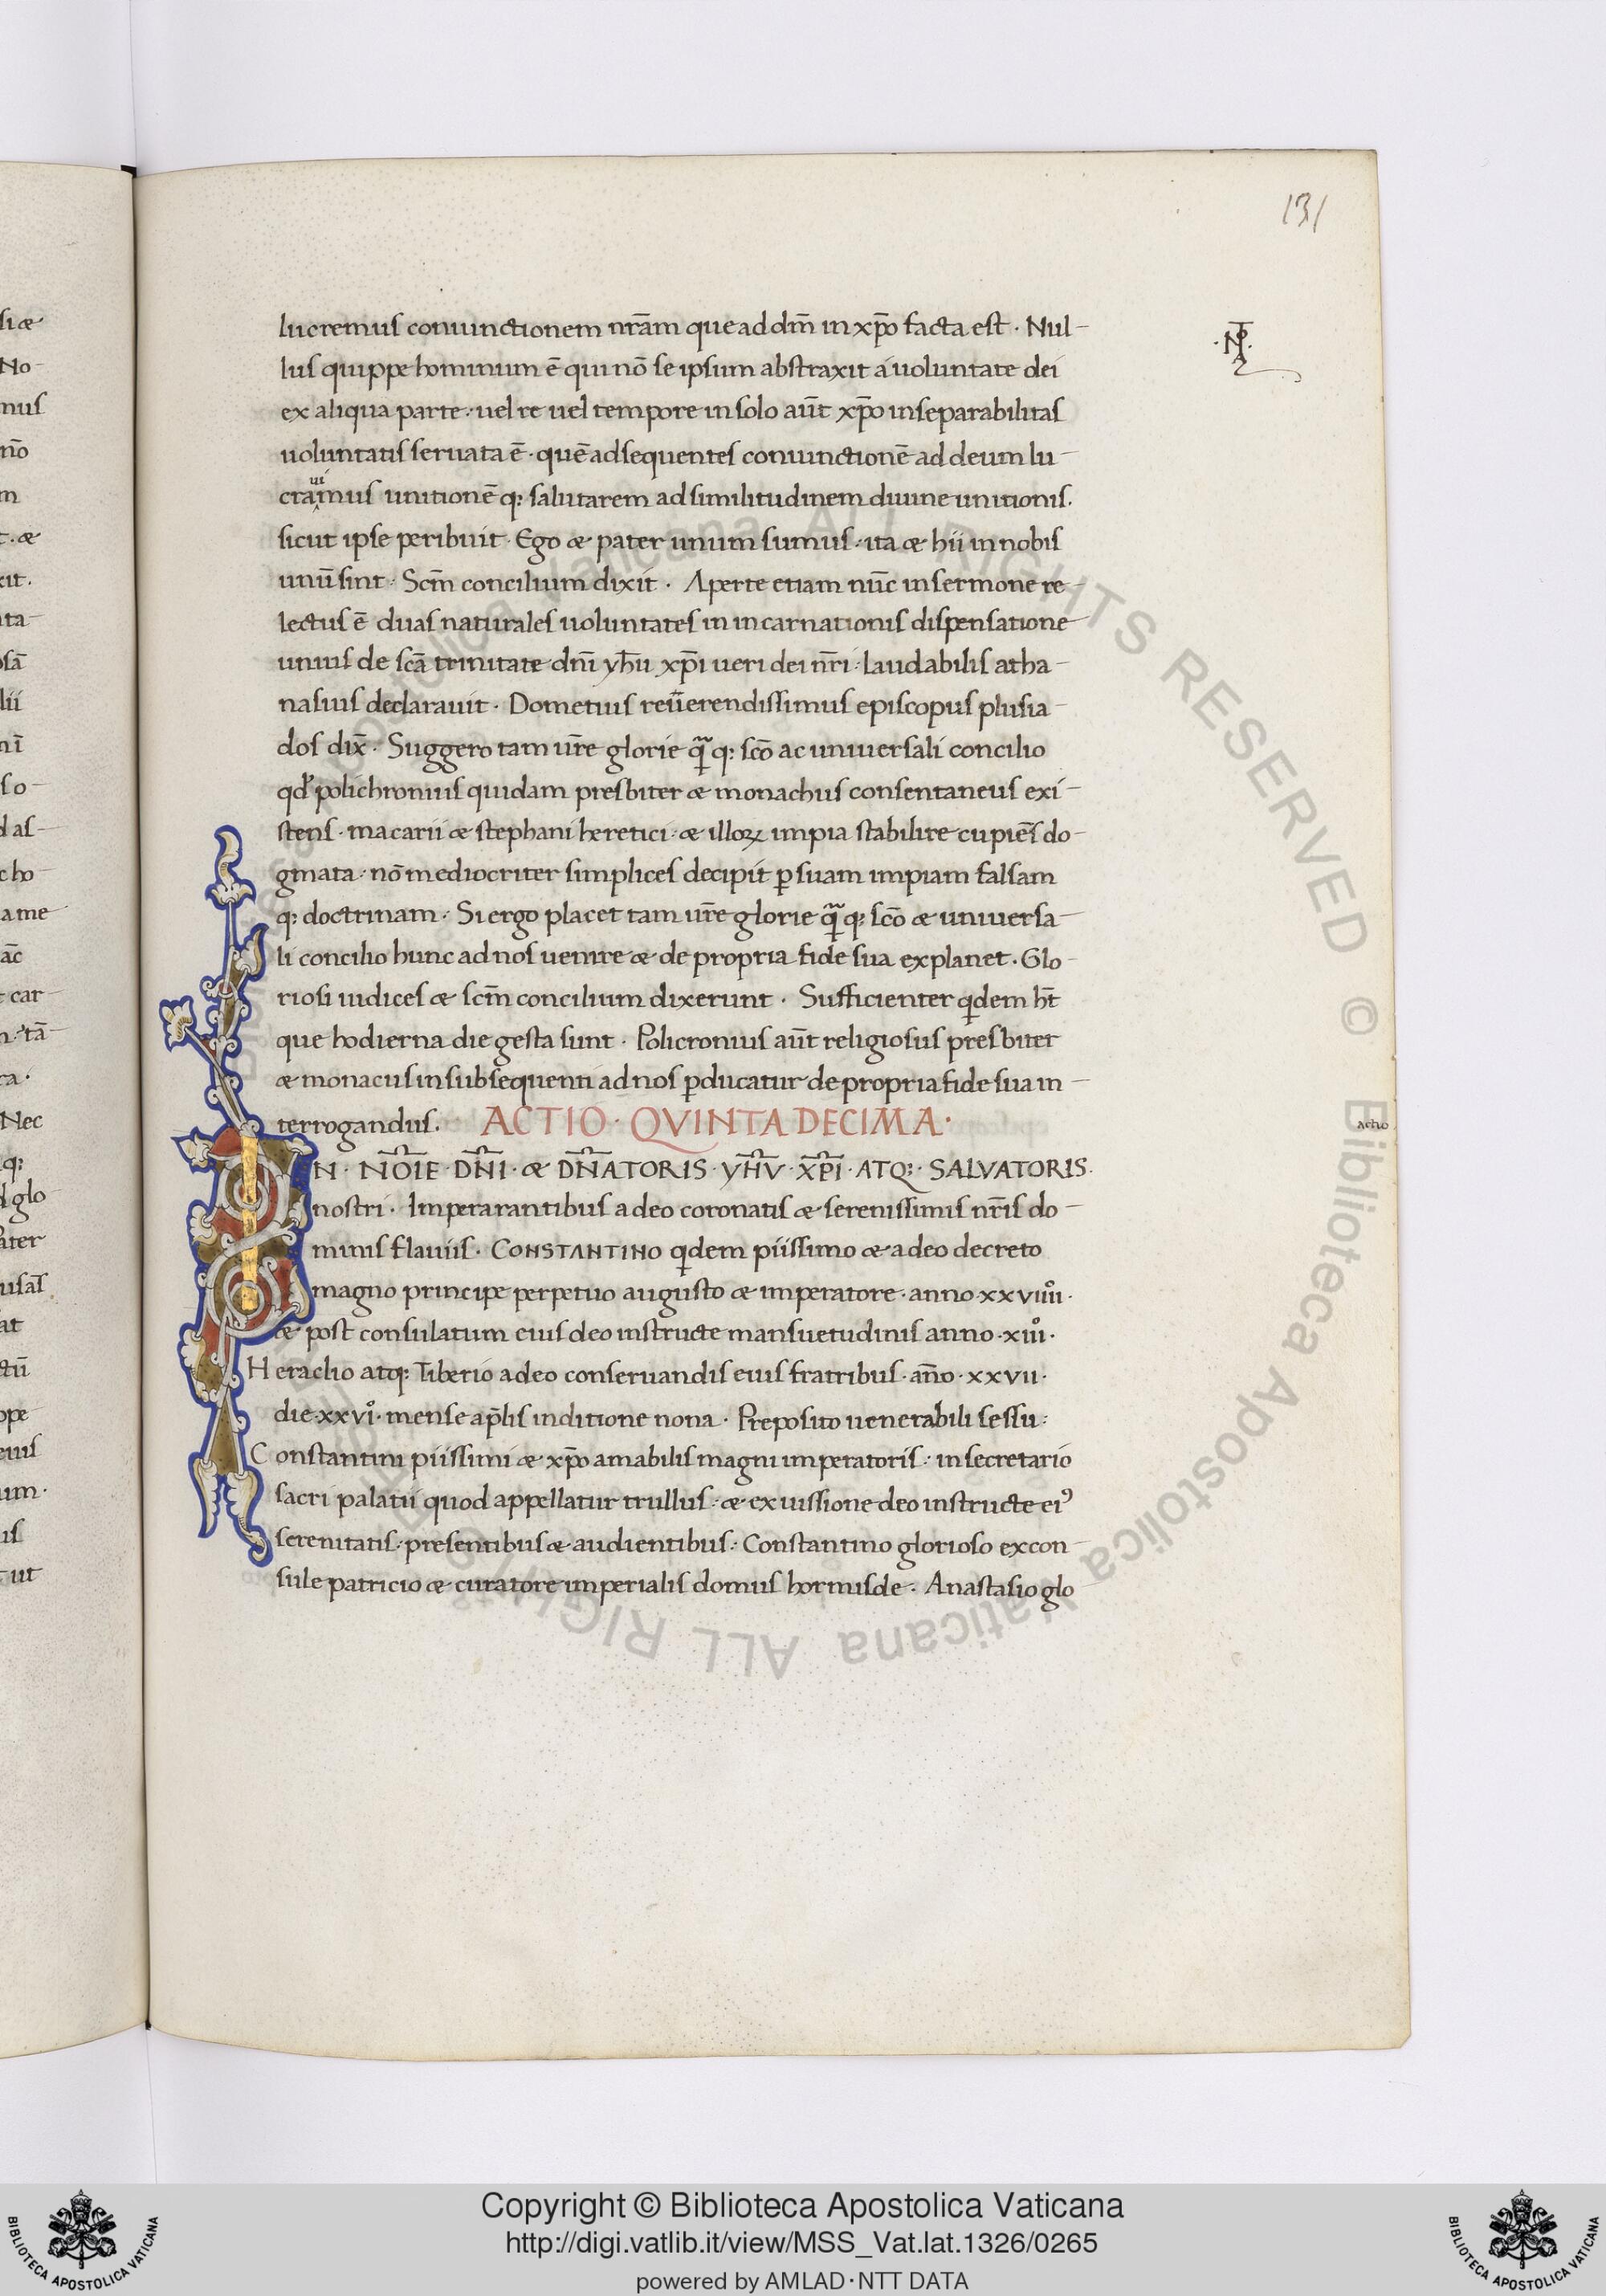 131
lucremus coniunctionem nr̄am que ad dm̄ in xp̄o facta est · Nul-
·NOTA·
lus quippe hominum ē qui nō se ipsum abstraxit a uoluntate dei
ex aliqua parte · uel re uel tempore in solo aūt xp̄o inseparabilitas
uoluntatis seruata ē · quē adsequentes coniunctionē ad deum lu-
cramus unitionē q; salutarem ad similitudinem diuine unitionis.
sicut ipse peribuit · Ego æ pater unum sumus · ita æ hii in nobis
unū sint · Scm̄ concilium dixit · Aperte etiam nūc in sermone re-
lectus ē duas naturales uoluntates in incarnationis dispensatione
unius de scā trinitate dn̄i yh̄u xp̄i ueri dei nr̄i · laudabilis atha-
nasius declarauit · Dometius reūerendissimus episcopus plusia-
dos dix̄ · Suggero tam ur̄e glorie q̄ q; scō ac uniuersali concilio
qđ polichronius quidam presbiter æ monachus consentaneus exi-
stens · macarii æ stephani heretici · æ illoꝝ impia stabilire cupiēs do-
gmata · nō mediocriter simplices decipit ꝑ suam impiam falsam
q; doctrinam · Si ergo placet tam ur̄e glorie q̄ q; scō æ uniuersa-
li concilio hunc ad nos uenire æ de propria fide sua explanet · Glo-
riosi iudices æ scm̄ concilium dixerunt · Sufficienter qdem hn̄t
que hodierna die gesta sunt · Policronius aūt religiosus presbiter
æ monacus in subsequenti ad nos ꝑducatur de propria fide sua in-
terrogandus · ACTIO · QVINTA DECIMA ·
actio
IN · NOIE · DNI · æ DNATORIS · YHV · XPI · ATQ; · SALVATORIS ·
nostri · Imperarantibus a deo coronatis æ serenissimis nr̄is do-
minis flauiis · CONSTANTINO qdem piissimo æ a deo decreto
magno principe perpetuo augusto æ imperatore · anno · xxviiii° ·
æ post consulatum eius deo instructe mansuetudinis anno · xiii° ·
Heraclio atq; Tiberio a deo conseruandis eius fratribus · añno · xxvii ·
die · xxvi° · mense ap̄lis inditione nona · Preposito uenerabili sessu :
Constantini piissimi æ xp̄o amabilis magni imperatoris · in secretario
sacri palatii quod appellatur trullus · æ ex iussione deo instructe eiꝰ
serenitatis · presentibus æ audientibus · Constantino glorioso excon-
sule patricio æ curatore imperialis domus hormisde · Anastasio glo-
Copyright © Biblioteca Apostolica Vaticana
http://digi.vatlib.it/view/MSS_Vat.lat.1326/0265
powered by AMLAD·NTT DATA
BIBLIOTECA APOSTOLICA VATICANA
BIBLIOTECA APOSTOLICA VATICANA